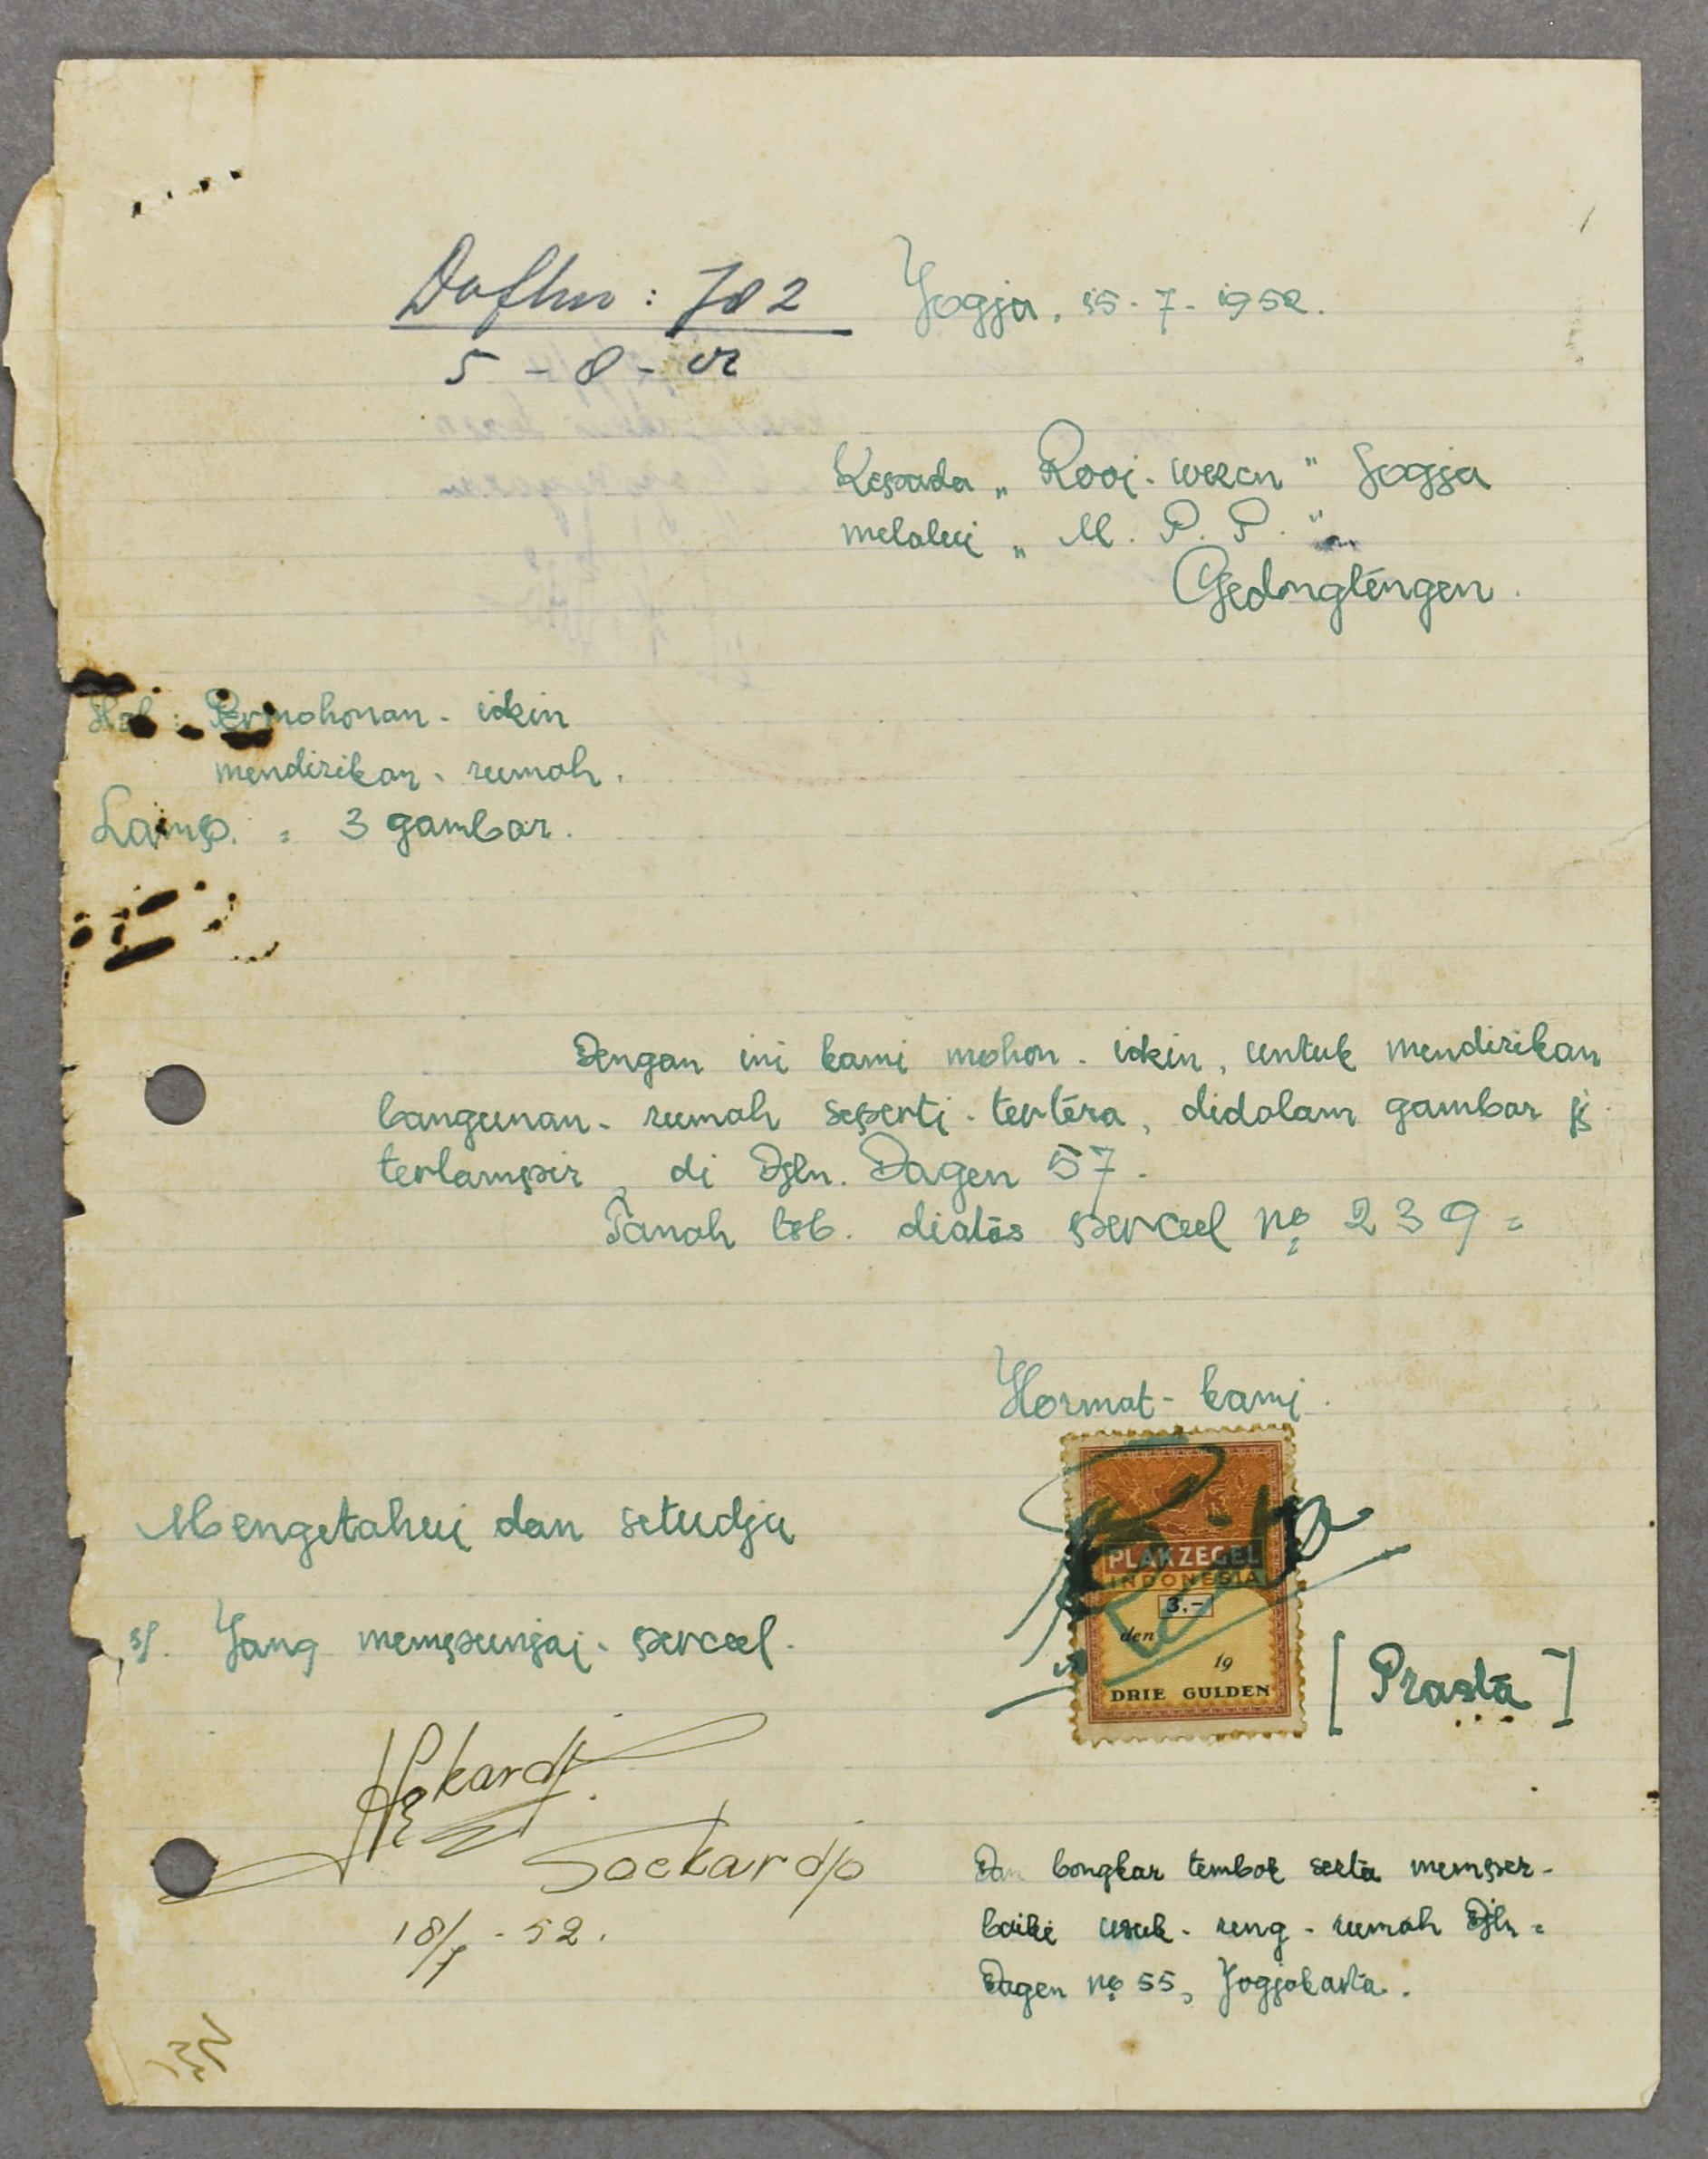 Daftar : 702
5 - 8 - 52
Jogja, 15 - 7 - 1952.
Kepada „ Rooi - wezen " Jogja
melalui „ M. P. P. "
Gedongténgen.
Hal : Permohonan - idzin
mendirikan - rumah.
Lamp. = 3 gambar.
Dengan ini kami mohon - idzin, untuk mendirikan
bangunan - rumah seperti - tertéra, didalam gambar jg
terlampir, di Djln. Dagen 57.
Tanah tsb. diatās perceel No 239 =
Hormat - kami.
PLAKZEGEL
INDONESIA
3.-
den
19
DRIE GULDEN
[ Prastā ]
Mengetahui dan setudju
Jang mempunjai - perceel.
Soekardjo
18/7 - 52.
Dan bongkar tembok serta memper-
baiki usuk - reng - rumah Djln =
Dagen No 55, Jogjakarta.